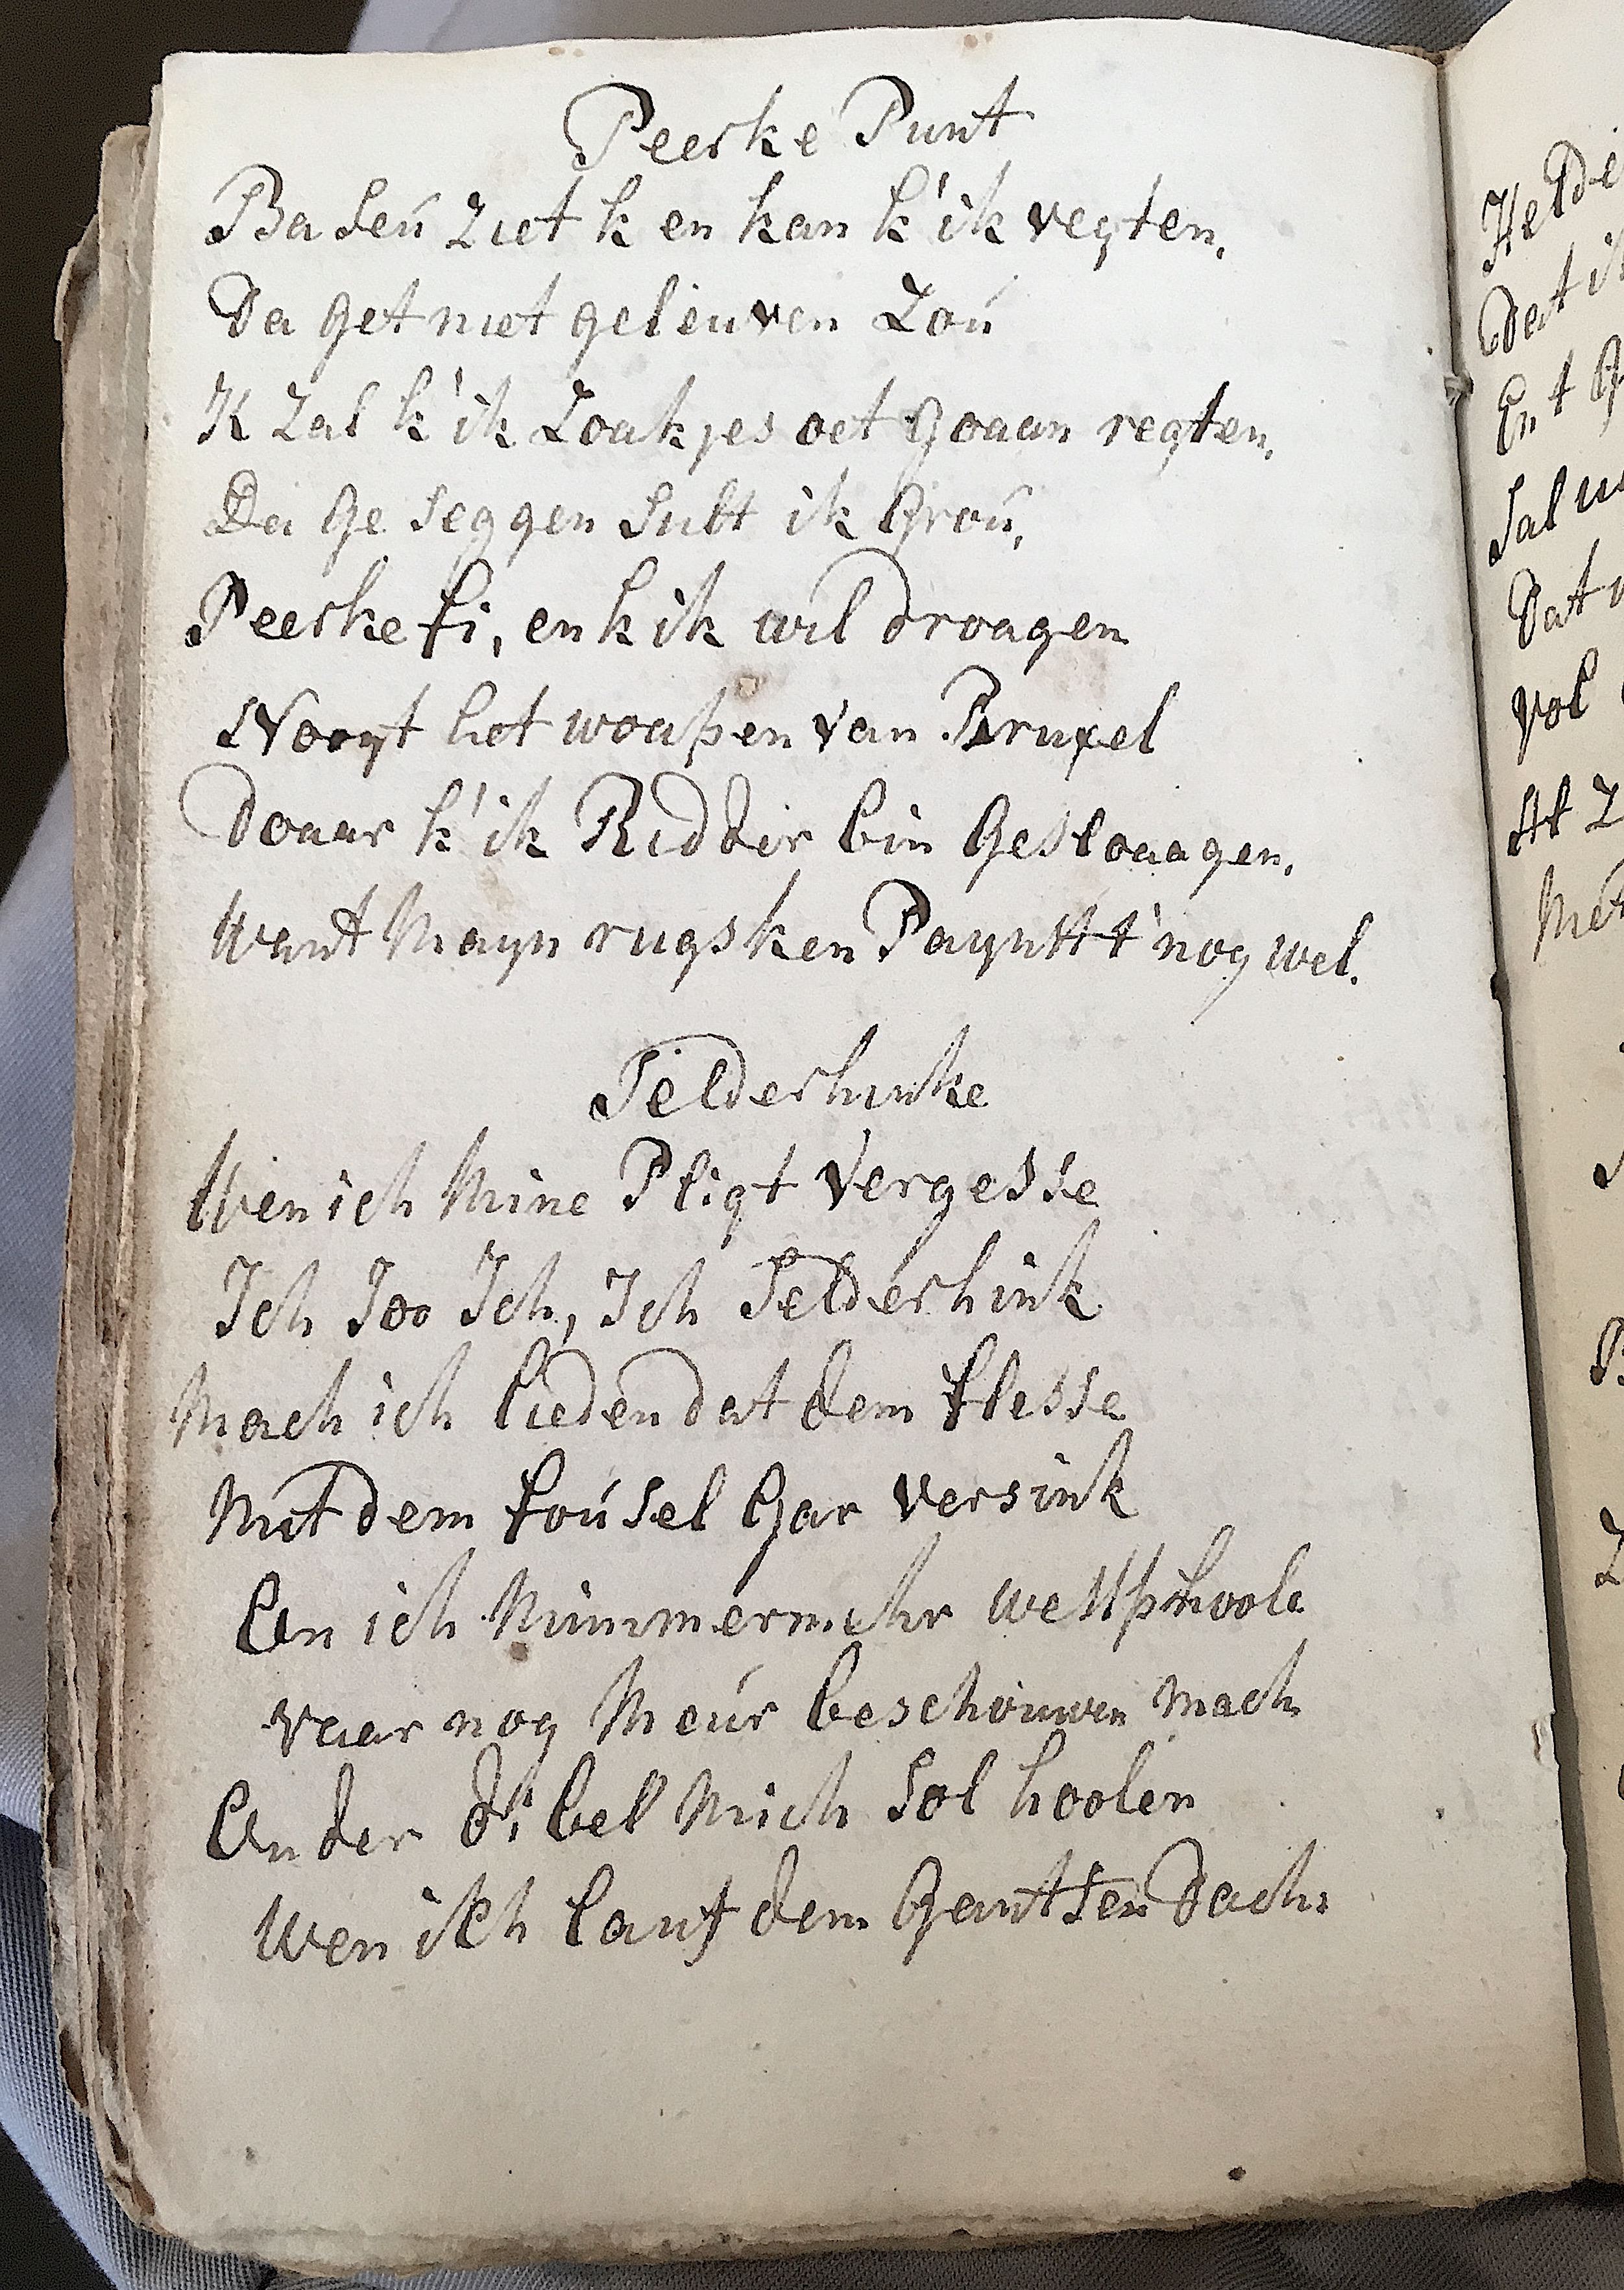 Peerke Punt
Baseú Ziet k en kan k'ik vegten,
Da get niet geleuven Zoú
K Zal k'ik Zoakjes oet Goaan regten,
Da Ge seggen Sult ik Groú,
Peerke fi, en k ik wil droagen
Noogt het woapen van Bruxel
Doaar k'ik Riddir bin Geslaagen,
Want Mayn rugsken Paynkt t'nog wel.
Selderhinke
Wen ich Mine Pligt Vergesse
Ich Joo Ich, Ich Selderhink
Mach ich lieden dat dem flesse
Mit dem foúsel Gar Versink
En ich Nimmermehr
vaar nog Meúr beschouwen Mach
En der di bel Mich Sol hoolen
Wen ich lauf dem Gantsen Dach
Helde
Dat ik
En t
Sal
Dat
Vol
At Z
Met